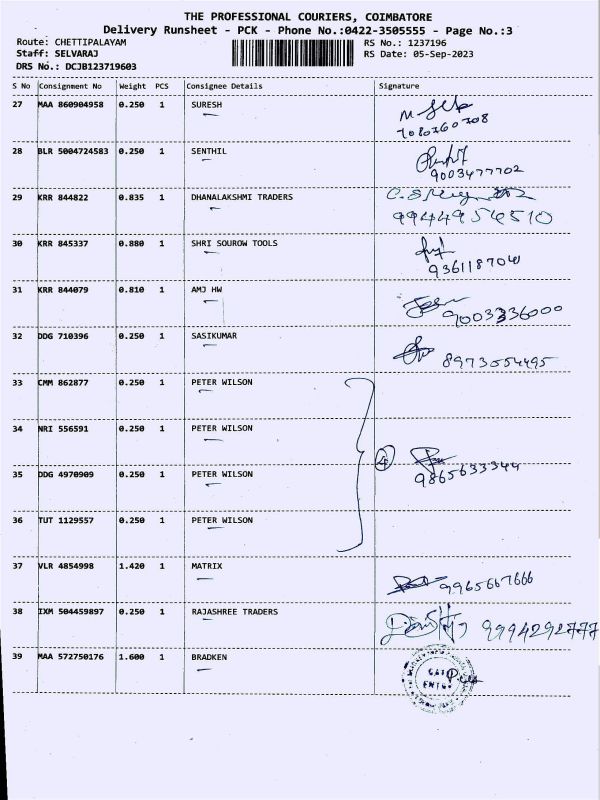 THE PROFESSIONAL COURIERS, COIMBATORE
Delivery Runsheet - PCK - Phone No.:0422-3505555 - Page No.:3
Route: CHETTIPALAYAM RS No.: 1237196
Staff: SELVARAJ RS Date: 05-Sep-2023
DRS No.: DCJB123719603
S No Consignment No Weight PCS Consignee Details Signature
27 MAA 860904958 0.250 1 SURESH
28 BLR 5004724583 0.250 1 SENTHIL
9003477702
29 KRR 844822 0.835 1 DHANALAKSHMI TRADERS
9944956510
30 KRR 845337 0.880 1 SHRI SOUROW TOOLS
31 KRR 844079 0.810 1 AMJ HW
9003336000
32 DDG 710396 0.250 1 SASIKUMAR
8973554495
33 CMM 862877 0.250 1 PETER WILSON
34 NRI 556591 0.250 1 PETER WILSON
4
35 DDG 4970909 0.250 1 PETER WILSON
9865633344
36 TUT 1129557 0.250 1 PETER WILSON
37 VLR 4854998 1.420 1 MATRIX
9965667666
38 IXM 504459897 0.250 1 RAJASHREE TRADERS
9994292777
39 MAA 572750176 1.600 1 BRADKEN